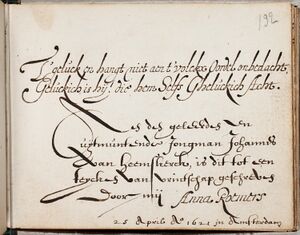 192
T'geluck en hangt niet aen t'volckx Oordel onbedacht,
Geluckich is hy, die hem Selfs Gheluckich acht.
des geleerden En
uytmuntende Jongman Johannis
van heemskerck, is dit tot een
teycken van vrintschap geschreven
Door mij Anna Roemers
25 Aprilis Ao 1621 in Amsterdam